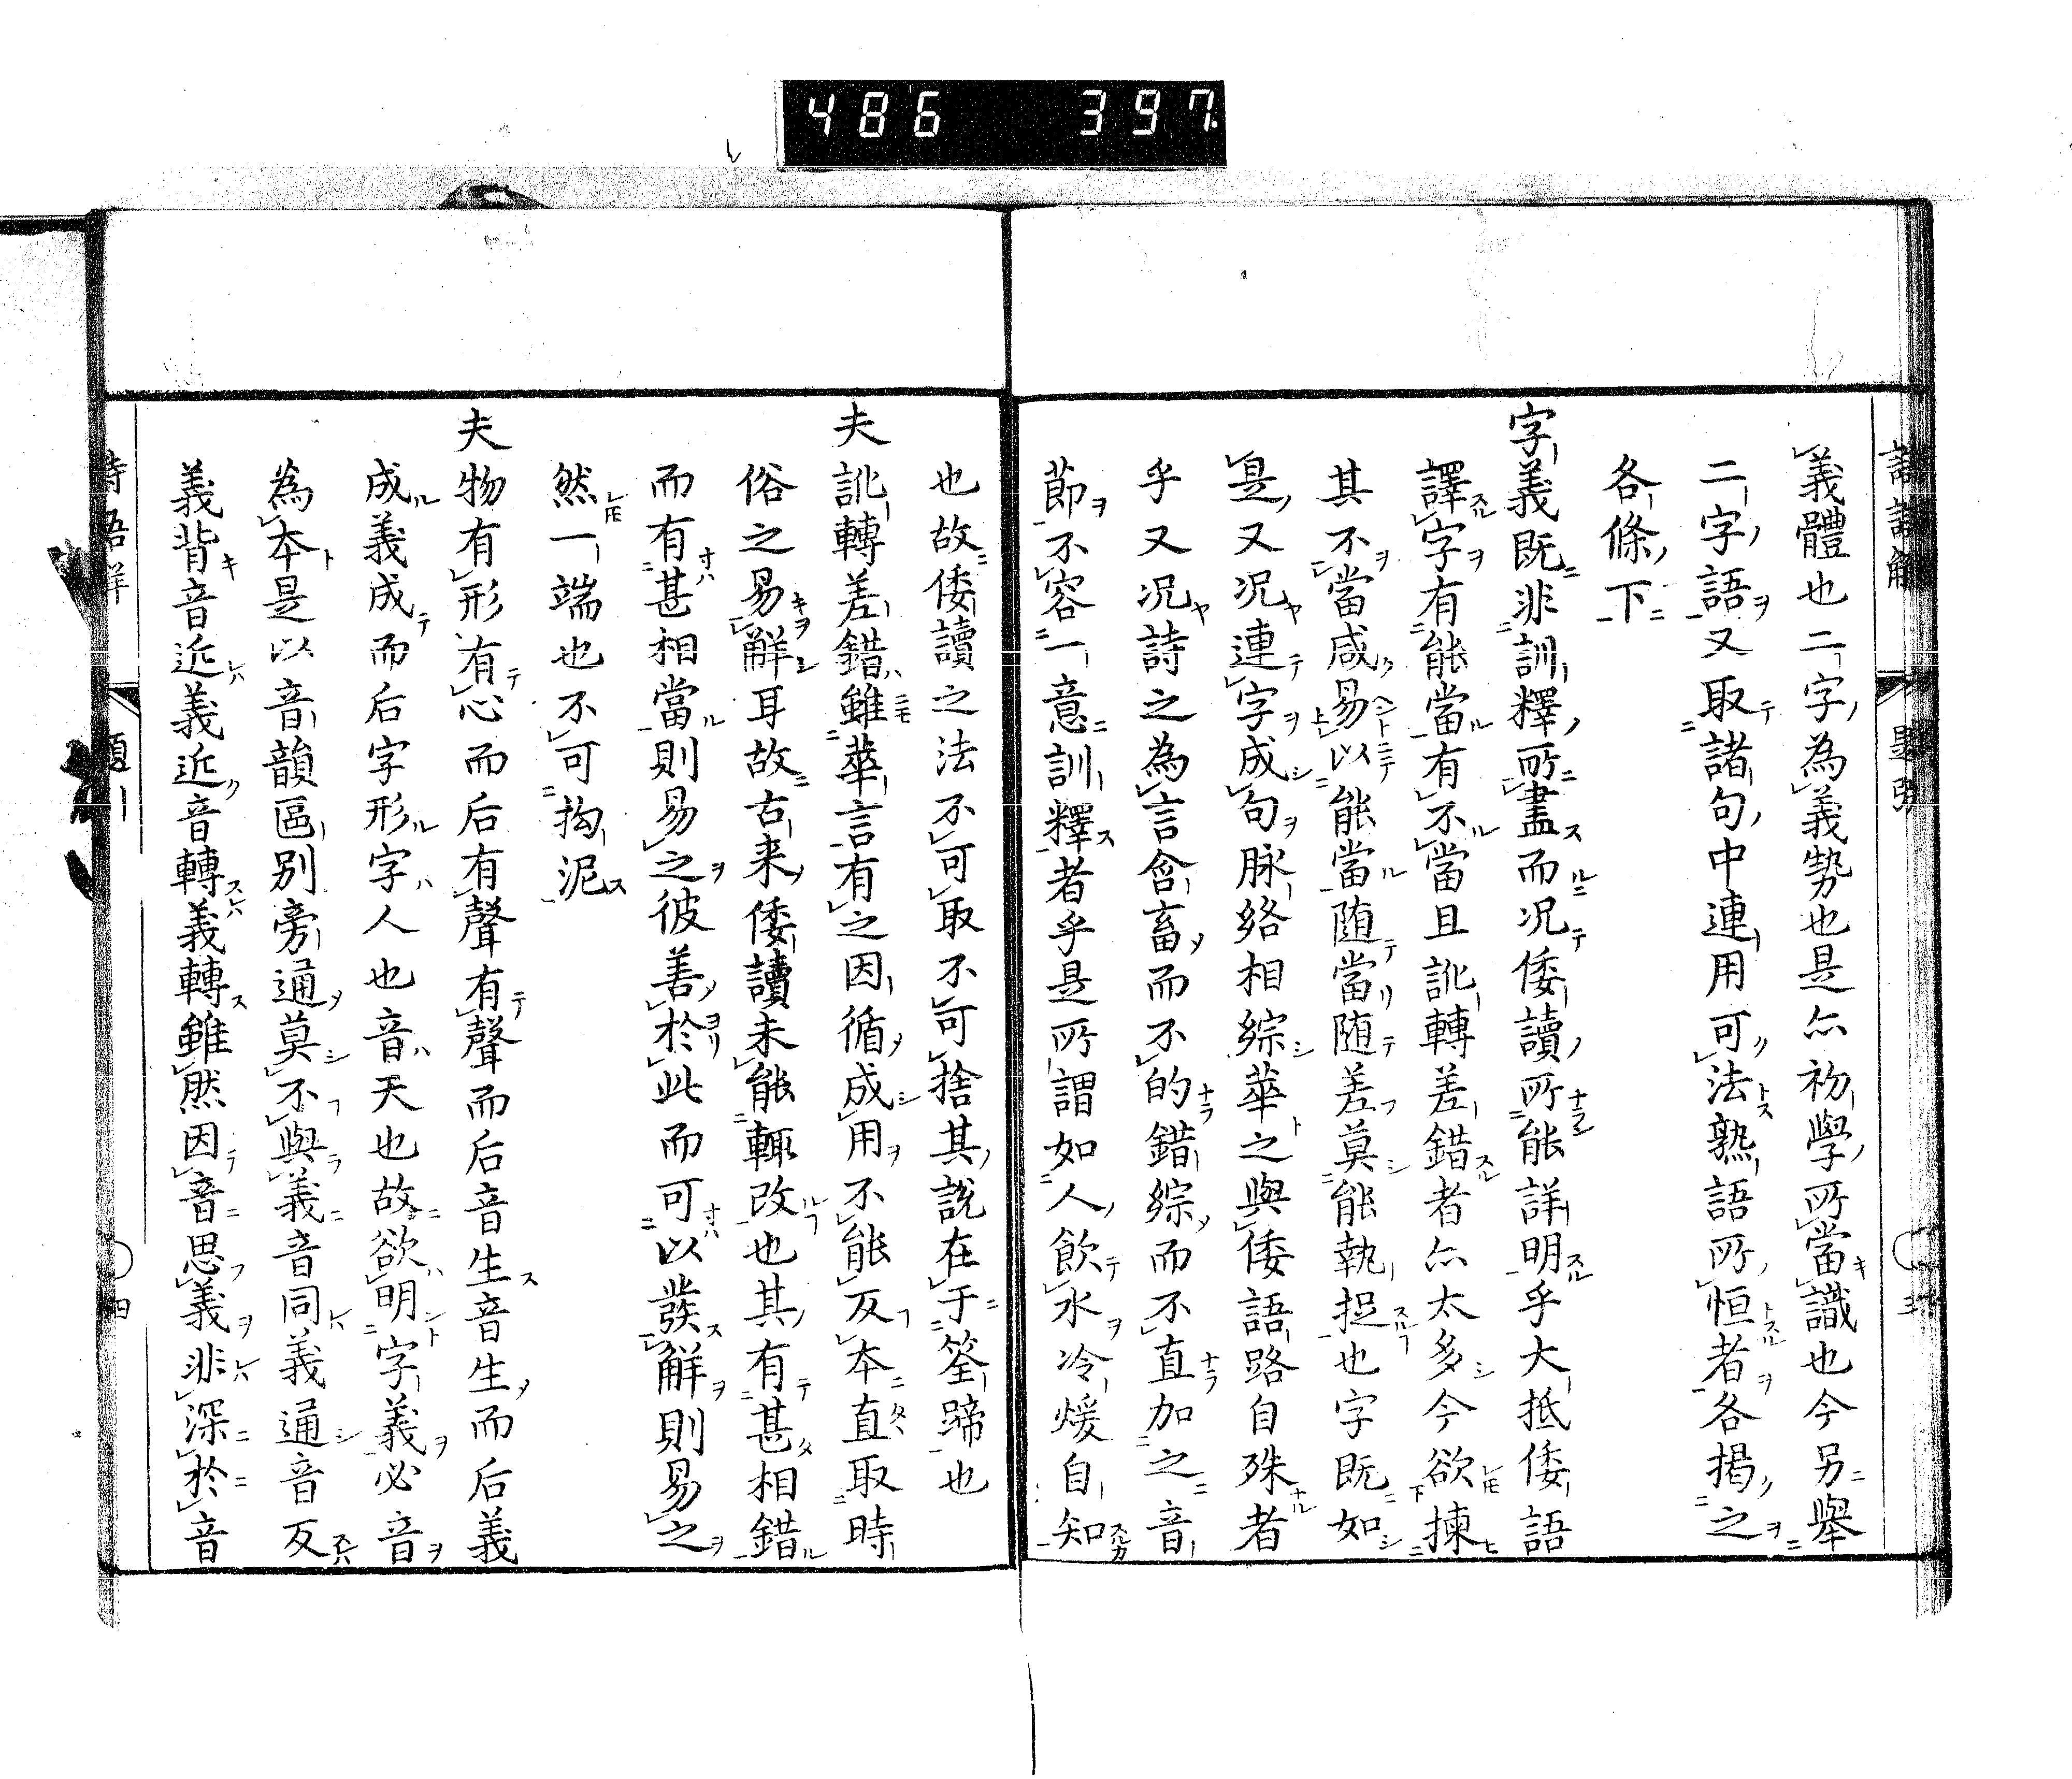 486 397
義體也二字為義勢也是亦初學所當識也今另舉
二字語又取諸句中連用可法熟語所恒者各揭之
各條下
字義既非訓釋所盡而况倭讀所能詳明乎大抵倭語
譯字有能當有不當且訛轉差錯者亦太多今欲揀
其不當咸易以能當随當随差莫能執捉也字既如
是又况連字成句脉絡相綜華之與倭語路自殊者
乎又况詩之為言含畜而不的錯綜而不直加之音
節不容一意訓釋者乎是所謂如人飲水冷煖自知
也故倭讀之法不可取不可捨其說在于筌蹄也
夫訛轉差錯雖華言有之因循成用不能反本直取時
俗之易解耳故古来倭讀未能輙改也其有甚相錯
而有甚相當則易之彼善於此而可以發解則易之
然一端也不可拘泥
夫物有形有心而后有聲有聲而后音生音生而后義
成義成而后字形字人也音天也故欲明字義必音
為本是以音韻區別旁通莫不與義音同義通音反
義背音近義近音轉義轉雖然因音思義非深於音
詩語解 題 四